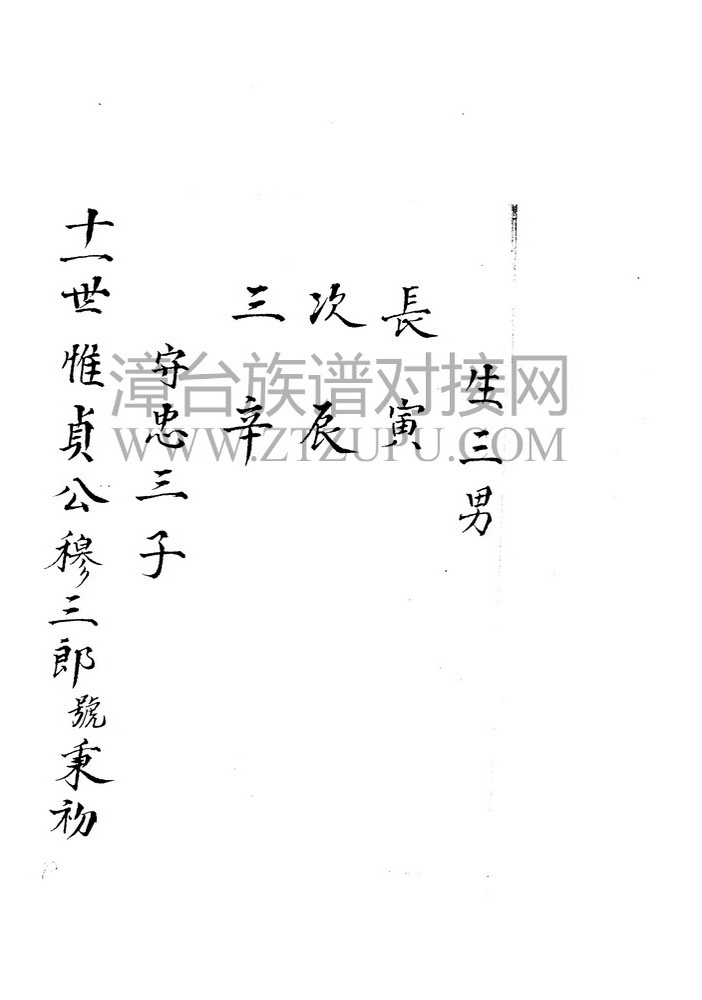 生三男
長 寅
次 辰
三 辛
守忠三子
十一世惟貞公穆三郎號秉初
漳台族谱对接网
WWW.ZTZUPU.COM